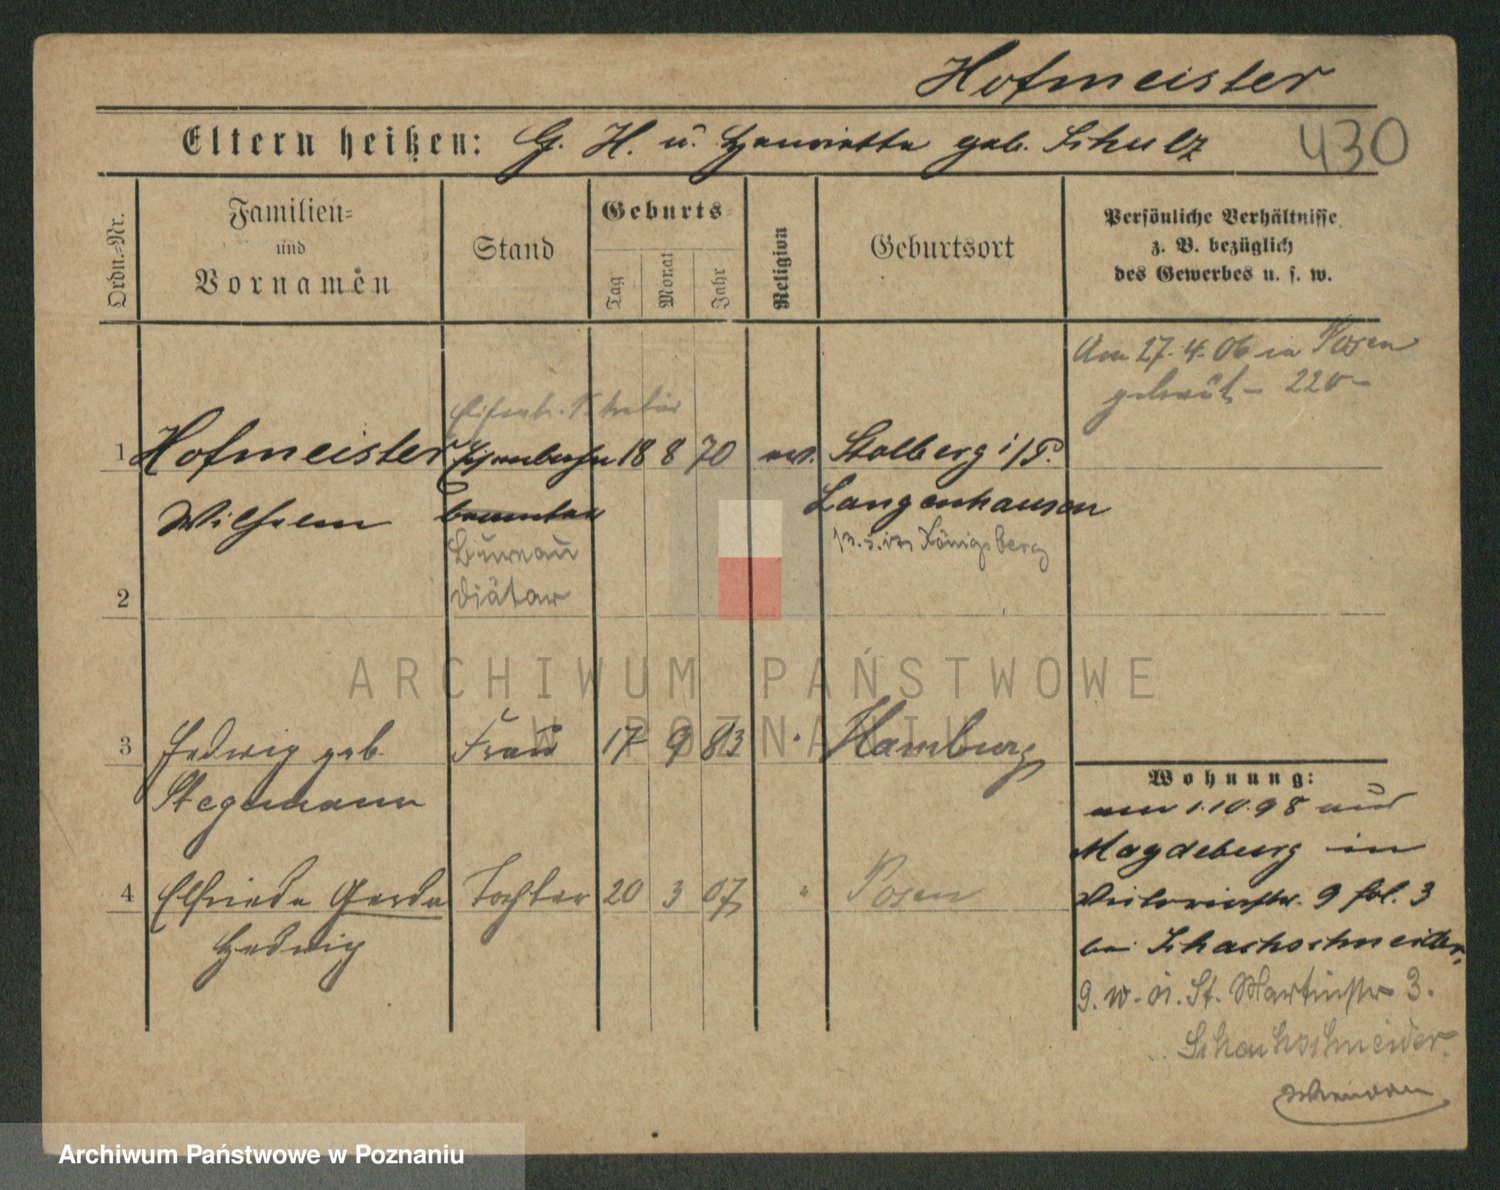 Hofmeister
430
Eltern heißen: G. H. u. Henriette geb. Schulz
Ordn.-Nr.
Familien-
und
Vornamen
Stand
Geburts-
Tag
Monat
Jahr
Religion
Geburtsort
Persönliche Verhältnisse
z. B. bezüglich
des Gewerbes u. s. w.
Am 27. 4. 06 in Posen
getraut - 220-
Eisenb. Sekretär
1 Hofmeister Eisenbahn 18 8 70 ev. Stolberg i/P.
Wilhelm beamter Langenhausen
Bureau in Königsberg
2 Diätar
3 Hedwig geb. Frau 17 9 83 " Hamburg
Stegemann
4 Elfriede Gerda Tochter 20 3 07 " Posen
Hedwig
Wohnung:
am 1.10.98 aus
Magdeburg in
Victoriastr. 9 fol. 3
bei Schachschneider,
9. W. St. Martinstr 3.
Schachschneider.
ARCHIWUM PAŃSTWOWE
W POZNANIU
Archiwum Państwowe w Poznaniu